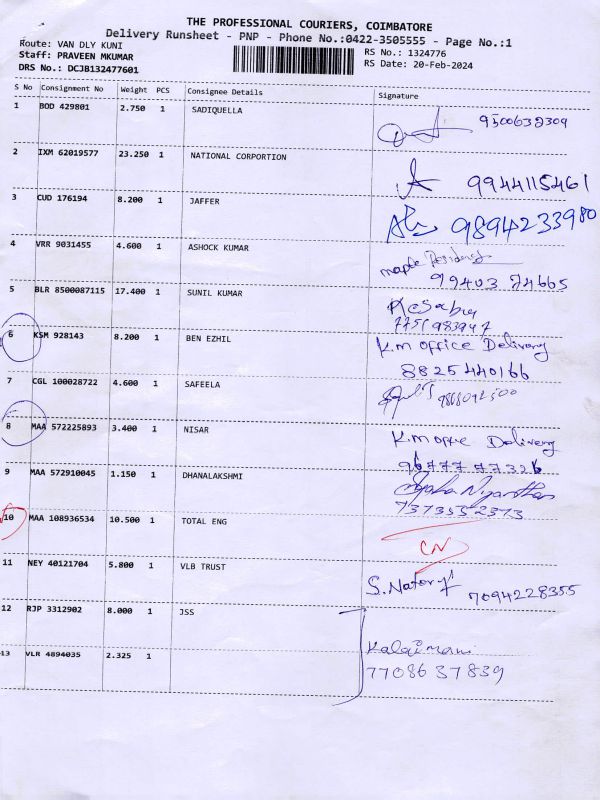 THE PROFESSIONAL COURIERS, COIMBATORE
Delivery Runsheet - PNP - Phone No.:0422-3505555 - Page No.:1
Route: VAN DLY KUNI RS No.: 1324776
Staff: PRAVEEN MKUMAR RS Date: 20-Feb-2024
DRS No.: DCJB132477601
S No Consignment No Weight PCS Consignee Details Signature
1 BOD 429801 2.750 1 SADIQUELLA 9500632309
2 IXM 62019577 23.250 1 NATIONAL CORPORTION 9944115461
3 CUD 176194 8.200 1 JAFFER 9894233980
4 VRR 9031455 4.600 1 ASHOCK KUMAR
99403 74665
5 BLR 8500087115 17.400 1 SUNIL KUMAR
7751 983947
6 KSM 928143 8.200 1 BEN EZHIL K.m office Delivery
8825440166
7 CGL 100028722 4.600 1 SAFEELA
8 MAA 572225893 3.400 1 NISAR K.m office Delivery
9 MAA 572910045 1.150 1 DHANALAKSHMI
7373552373
10 MAA 108936534 10.500 1 TOTAL ENG CN
11 NEY 40121704 5.800 1 VLB TRUST 7094228355
12 RJP 3312902 8.000 1 JSS Kalaimani
13 VLR 4894035 2.325 1 7708637839